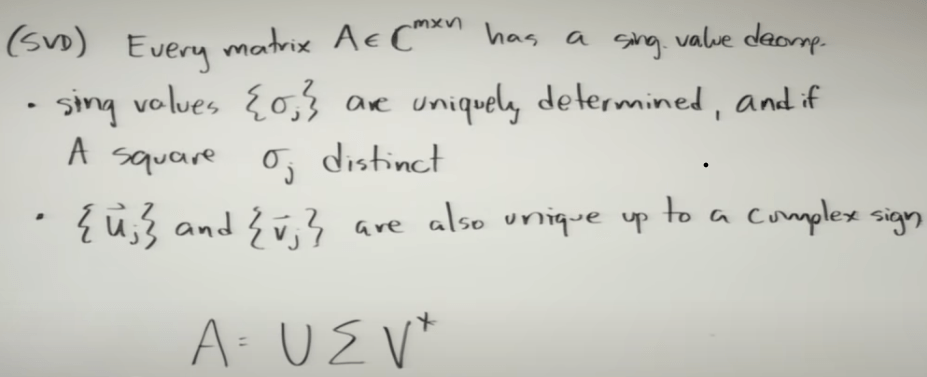 (SVD) Every matrix A ∈ ℂ^{m×n} has a sing. value decomp.
• sing values {σⱼ} are uniquely determined, and if
A square σⱼ distinct
• {u⃗ⱼ} and {v⃗ⱼ} are also unique up to a complex sign
A = U Σ V*